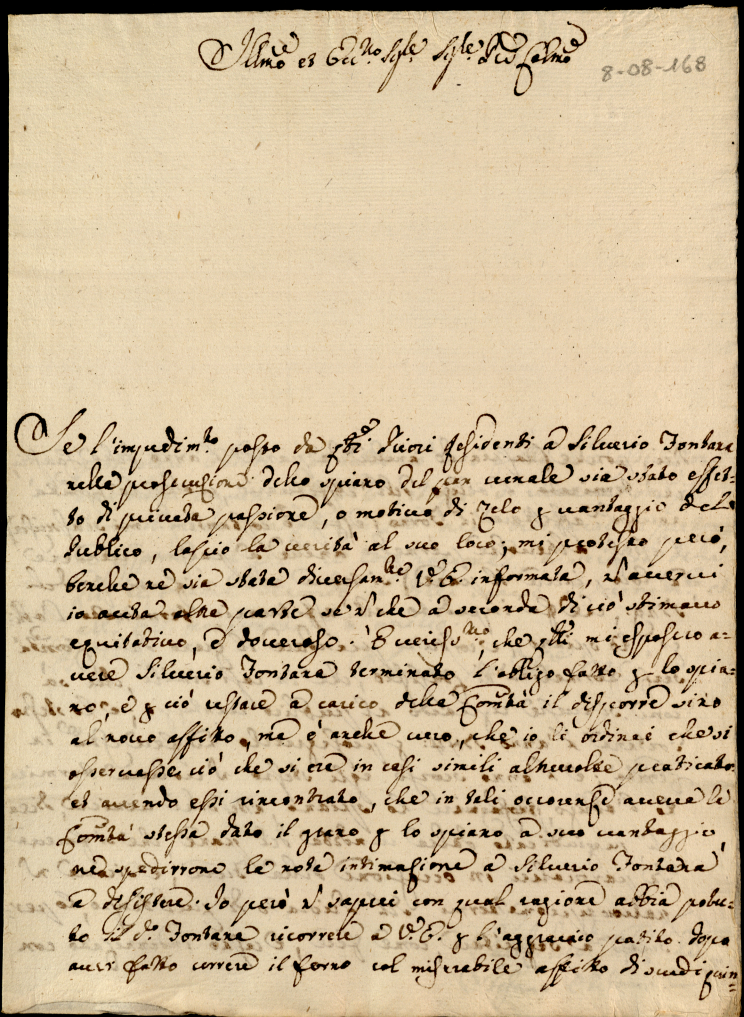 Illmo et Ecc.mo Sig.re Sig.re Pne Colmo
8-08-168
Se l'impedim.to posto da q.ti Priori residenti a Silverio Fontana
nella prosecuzione dello spiano del pan venale sia stato effet=
to di privata passione, o motivo di zelo p vantaggio del
Publico, lascio la verità al suo loco; mi protesto però,
benche ne sia stata diversam.te V.E. informata, ñ avervi
io avuta altra parte se ñ che a seconda di ciò stimavo
equitativo, e doveroso. E veriss.mo, che q.ti mi esposero a=
vere Silverio Fontana terminato l'obligo fatto p lo spia=
no, e p ciò restare a carico della Comtà il disporre sino
al novo affitto, ma è anche vero, che io li ordinai che si
osservasse ciò che si era in casi simili altrevolte praticato
et avendo essi rincontrato, che in tali occorenze aveva la
Comtà stessa dato il grano p lo spiano a suo vantaggio
ne spedirono la nota intimazione a Silverio Fontana
a desistere. Io però ñ saprei con qual ragione abbia potu=
to il d.o Fontana ricorrere a V.E. p l'aggravio patito dopo
aver fatto correre il forno col miserabile affitto di scudi quin=